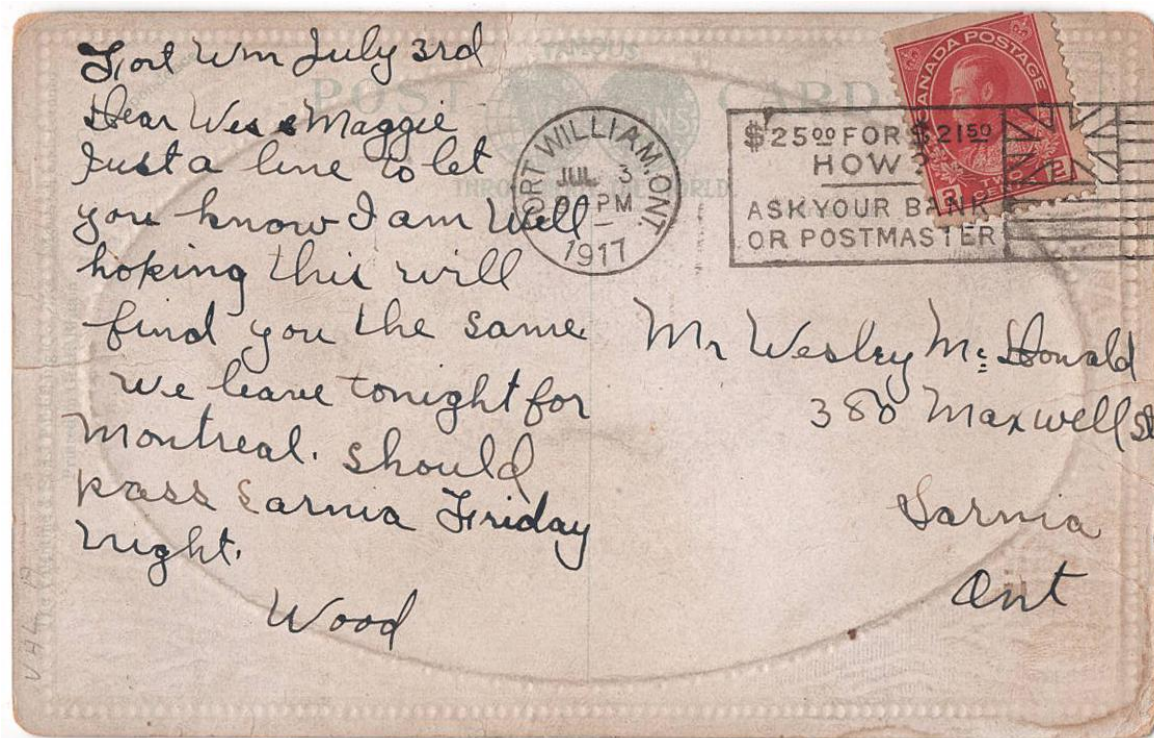 Fort Wm July 3rd
Dear Wes & Maggie
Just a line to let
you know I am Well
hoping this will
find you the same
We leave tonight for
Montreal. Should
pass Sarnia Friday
night.
Wood
FAMOUS
POST CARD
THROUGHOUT THE WORLD
FORT WILLIAM. ONT.
JUL 3
PM
1917
$25.00 FOR $21.50
HOW?
ASK YOUR BANK
OR POSTMASTER
CANADA POSTAGE
2 TWO CENTS 2
Mr Wesley Mc Donald
380 Maxwell St
Sarnia
Ont